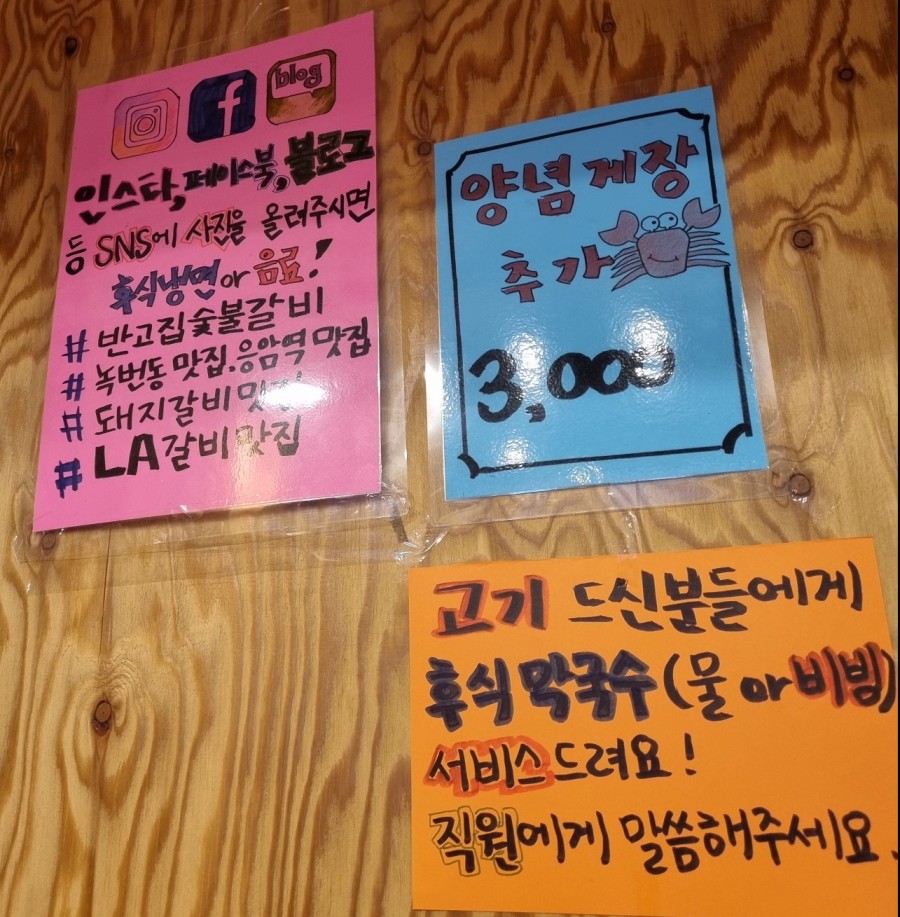 blog
인스타, 페이스북, 블로그
등 SNS에 사진을 올려주시면
후식냉면 or 음료!
# 반고집숯불갈비
# 녹번동 맛집. 응암역 맛집
# 돼지갈비맛집
# LA갈비맛집
양념게장
추가
3,000
고기 드신분들에게
후식 막국수 (물 or 비빔)
서비스드려요!
직원에게 말씀해주세요.